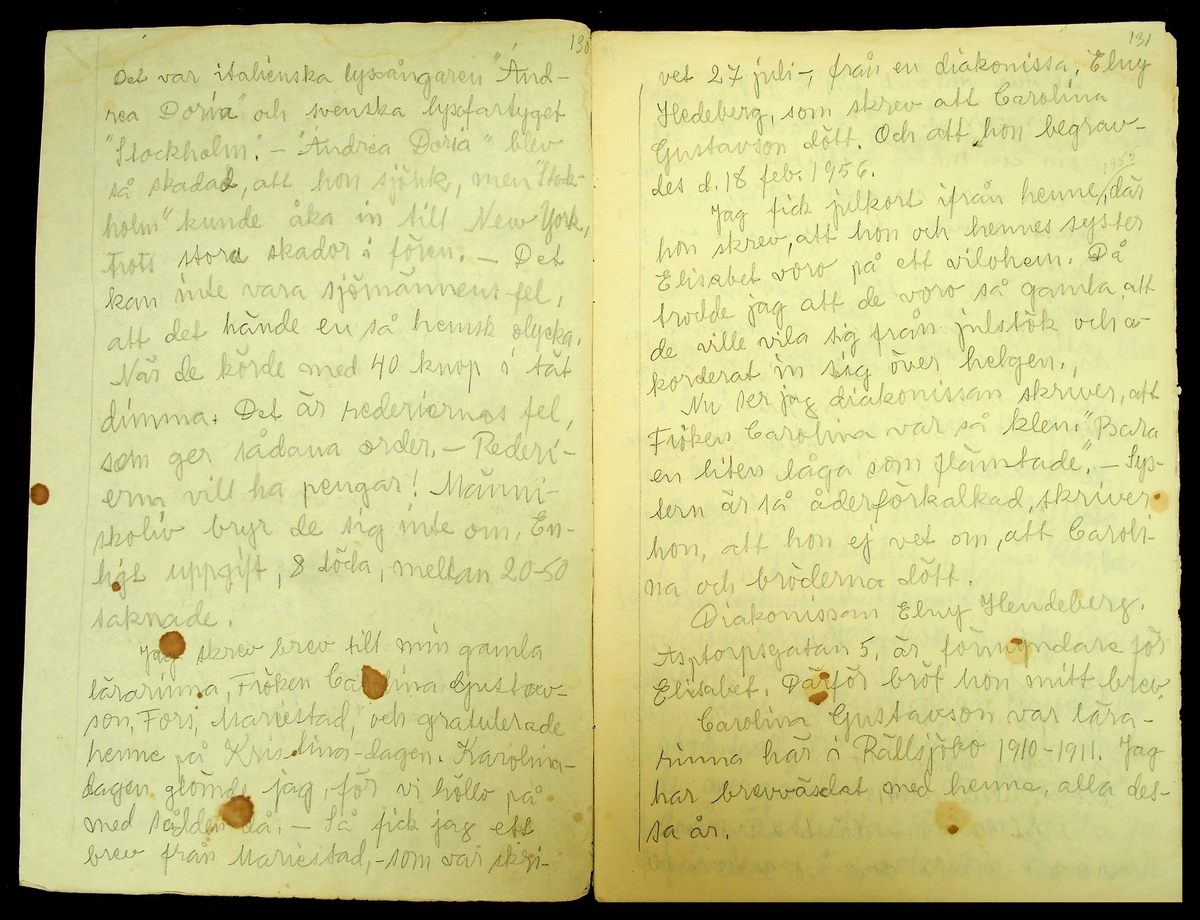 130
Det var italienska lyxångaren "And-
rea Doria" och svenska lyxfartyget
"Stockholm". – "Andrea Doria" blev
så skadad, att hon sjönk, men "Stock-
holm" kunde åka in till New York,
trots stora skador i fören. – Det
kan inte vara sjömännens fel,
att det hände en så hemsk olycka.
När de körde med 40 knop i tät
dimma. Det är rederiernas fel,
som ger sådana order. – Rederi-
erna vill ha pengar! Männi-
skoliv bryr de sig inte om. En-
ligt uppgift, 8 döda, mellan 20-50
saknade.
Jag skrev brev till min gamla
lärarinna, Fröken Carolina Gustav-
son, Fors, Mariestad, och gratulerade
henne på Kristina-dagen. Karolina-
dagen glömde jag, för vi höllo på
med sålden då. – Så fick jag ett
brev från Mariestad, – som var skri-
131
vet 27 juli –, från en diakonissa, Elny
Hedeberg, som skrev att Carolina
Gustavson dött. Och att hon begrav-
des d. 18 feb. 1956.
Jag fick julkort ifrån henne, 1955 där
hon skrev, att hon och hennes syster
Elisabet voro på ett vilohem. Då
trodde jag att de voro så gamla, att
de ville vila sig från julstök och a-
korderat in sig över helgen.,
Nu ser jag diakonissan skriver, att
Fröken Carolina var så klen. "Bara
en liten låga som flämtade". – Sys-
tern är så åderförkalkad, skriver
hon, att hon ej vet om, att Caroli-
na och bröderna dött.
Diakonissan Elny Hendeberg.
Asptorpsgatan 5, är förmyndare för
Elisabet. Därför bröt hon mitt brev.
Carolina Gustavson var lära-
rinna här i Rällsjöbo 1910-1911. Jag
har brevväxlat med henne, alla des-
sa år.